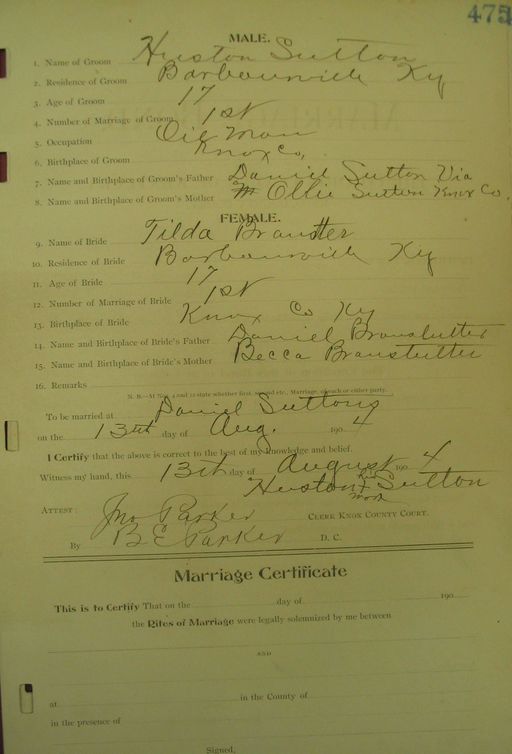 475
MALE.
1. Name of Groom Huston Sutton
2. Residence of Groom Barbourville Ky
3. Age of Groom 17
4. Number of Marriage of Groom 1st
5. Occupation Oil Man
6. Birthplace of Groom Knox Co,
7. Name and Birthplace of Groom's Father Daniel Sutton Via
8. Name and Birthplace of Groom's Mother Ollie Sutton Knox Co.
FEMALE.
9. Name of Bride Tilda
10. Residence of Bride Barbourville Ky
11. Age of Bride 17
12. Number of Marriage of Bride 1st
13. Birthplace of Bride Knox Co Ky
14. Name and Birthplace of Bride's Father Daniel Branstutter
15. Name and Birthplace of Bride's Mother Becca Branstutter
16. Remarks
N. B.—At Nos. 4 and 12 state whether first, second etc., Marriage, of each or either party.
To be married at Daniel Suttons
on the 13th day of Aug. 1904
I Certify that the above is correct to the best of my knowledge and belief.
Witness my hand, this 13th day of August 1904
Huston his Sutton
mark
ATTEST: Jno Parker CLERK KNOX COUNTY COURT.
By B E Parker D. C.
Marriage Certificate
This is to Certify That on the day of 190
the Rites of Marriage were legally solemnized by me between
AND
at in the County of
in the presence of
Signed,